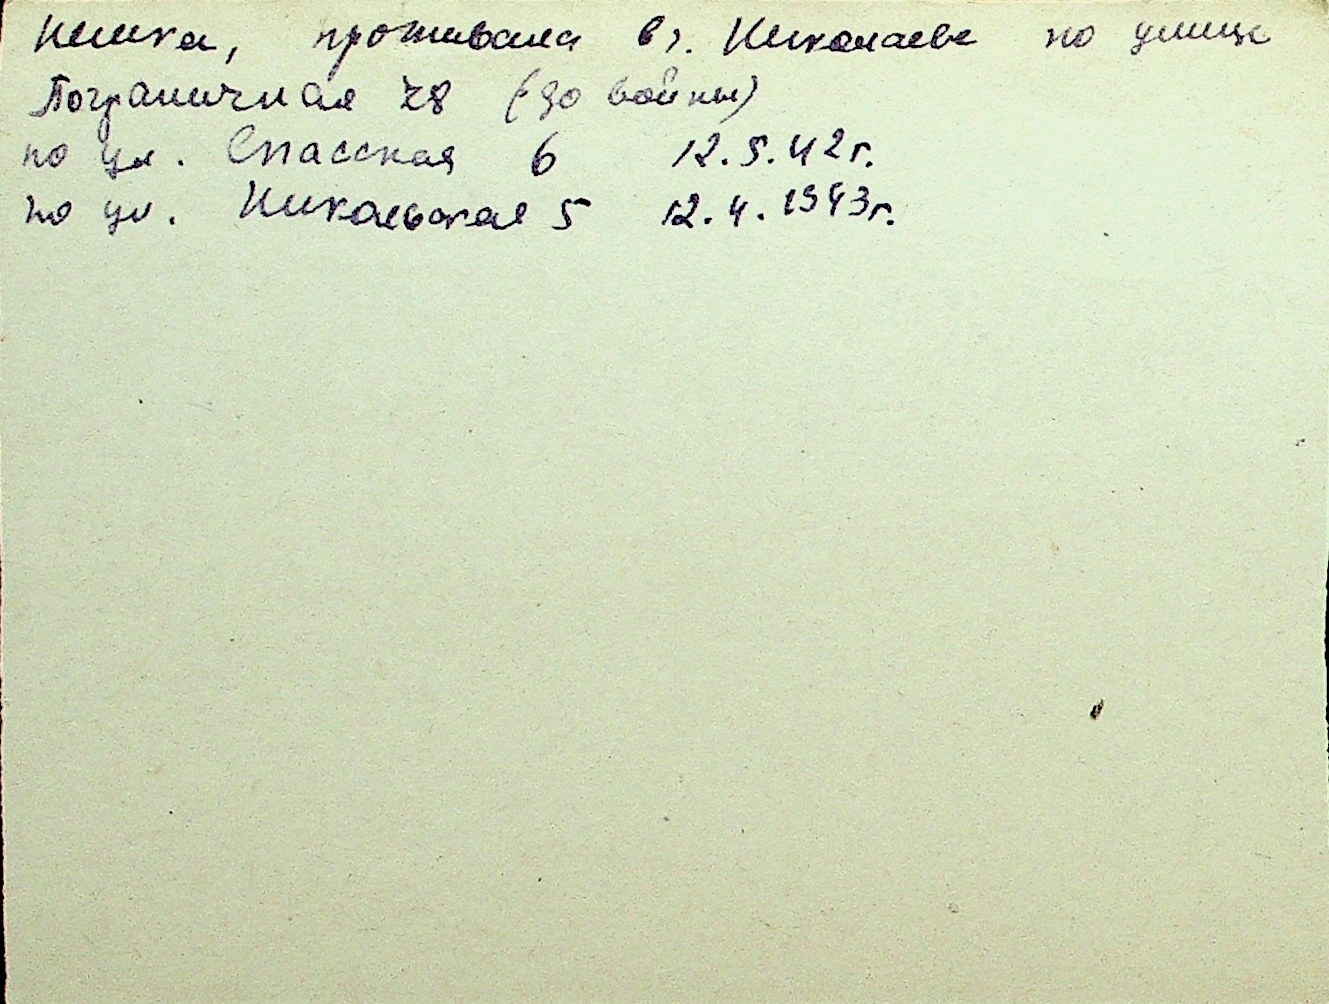 немка, проживала в г. Николаеве по улице
Пограничная 78 (до войны)
по ул. Спасская 6 12.5.42г.
по ул. Никольская 5 12.4.1943г.